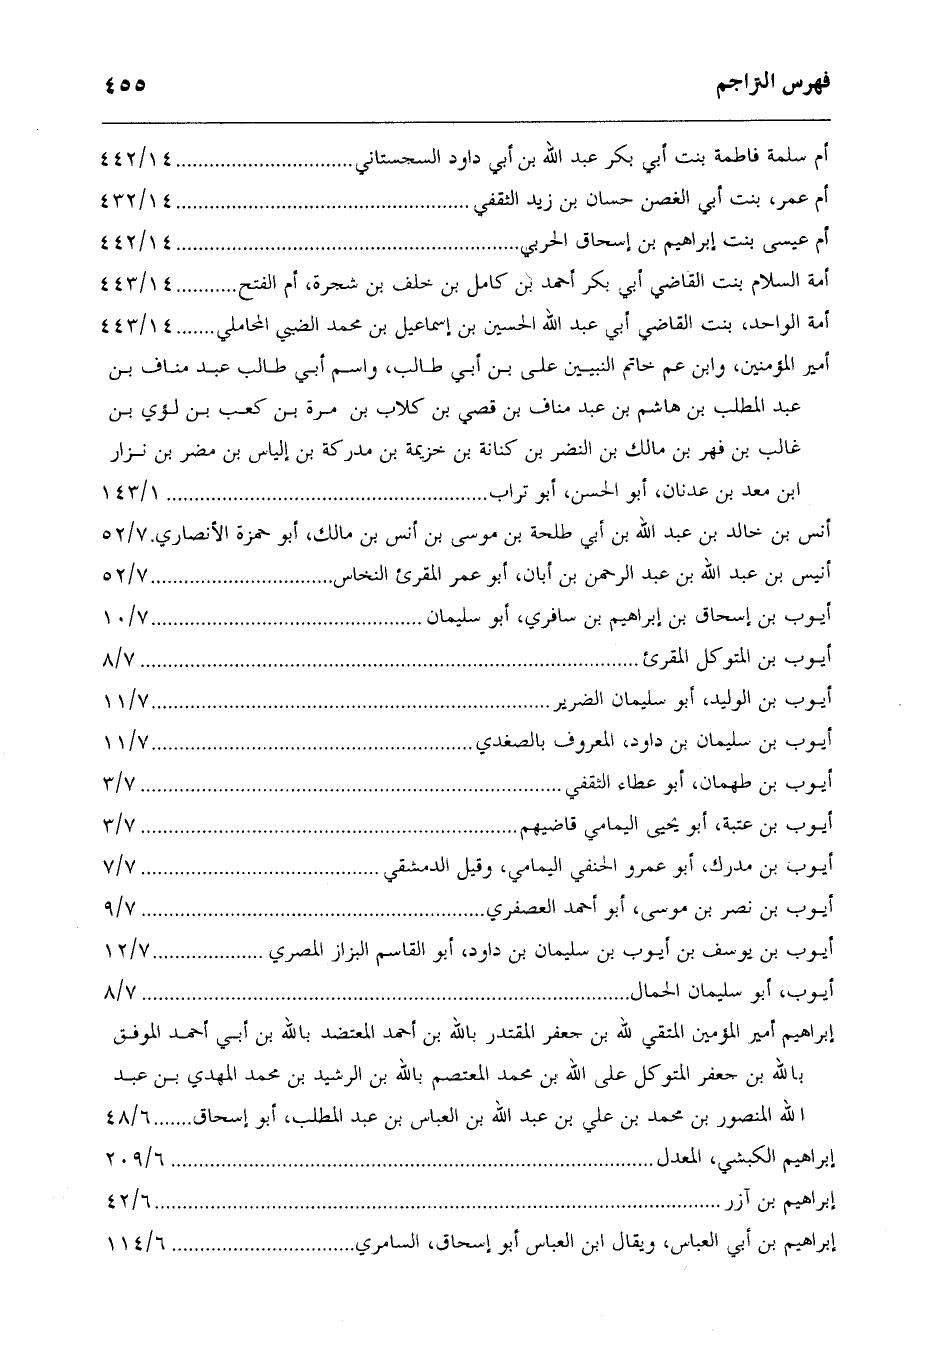 فهرس التراجم ٤٥٥
أم سلمة فاطمة بنت أبي بكر عبد الله بن أبي داود السجستاني................................٤٤٢/١٤
أم عمر، بنت أبي الغصن حسان بن زيد الثقفي....................................................٤٣٢/١٤
أم عيسى بنت إبراهيم بن إسحاق الحربي.............................................................٤٤٢/١٤
أمة السلام بنت القاضي أبي بكر أحمد بن كامل بن خلف بن شجرة، أم الفتح...........٤٤٣/١٤
أمة الواحد، بنت القاضي أبي عبد الله الحسين بن إسماعيل بن محمد الضبي المحاملي.......٤٤٣/١٤
أمير المؤمنين، وابن عم خاتم النبيين على بن أبي طالب، واسم أبي طالب عبد مناف بن
عبد المطلب بن هاشم بن عبد مناف بن قصي بن كلاب بن مرة بن كعب بن لؤي بن
غالب بن فهر بن مالك بن النضر بن كنانة بن خزيمة بن مدركة بن إلياس بن مضر بن نزار
ابن معد بن عدنان، أبو الحسن، أبو تراب.........................................................١٤٣/١
أنس بن خالد بن عبد الله بن أبي طلحة بن موسى بن أنس بن مالك، أبو حمزة الأنصاري.٥٢/٧
أنيس بن عبد الله بن عبد الرحمن بن أبان، أبو عمر المقرئ النخاس................................٥٢/٧
أيوب بن إسحاق بن إبراهيم بن سافري، أبو سليمان................................................١٠/٧
أيوب بن المتوكل المقرئ........................................................................................٨/٧
أيوب بن الوليد، أبو سليمان الضرير......................................................................١١/٧
أيوب بن سليمان بن داود، المعروف بالصغدي.........................................................١١/٧
أيوب بن طهمان، أبو عطاء الثقفي..........................................................................٣/٧
أيوب بن عتبة، أبو يحيى اليمامي قاضيهم...................................................................٣/٧
أيوب بن مدرك، أبو عمرو الحنفي اليمامي، وقيل الدمشقي..........................................٧/٧
أيوب بن نصر بن موسى، أبو أحمد العصفري............................................................٩/٧
أيوب بن يوسف بن أيوب بن سليمان بن داود، أبو القاسم البزاز المصري....................١٢/٧
أيوب، أبو سليمان الحمال......................................................................................٨/٧
إبراهيم أمير المؤمين المتقي لله بن جعفر المقتدر بالله بن أحمد المعتضد بالله بن أبي أحمد الموفق
بالله بن جعفر المتوكل على الله بن محمد المعتصم بالله بن الرشيد بن محمد المهدي بن عبد
الله المنصور بن محمد بن علي بن عبد الله بن العباس بن عبد المطلب، أبو إسحاق.......٤٨/٦
إبراهيم الكبشي، المعدل......................................................................................٢٠٩/٦
إبراهيم بن آزر....................................................................................................٤٢/٦
إبراهيم بن أبي العباس، ويقال ابن العباس أبو إسحاق، السامري................................١١٤/٦